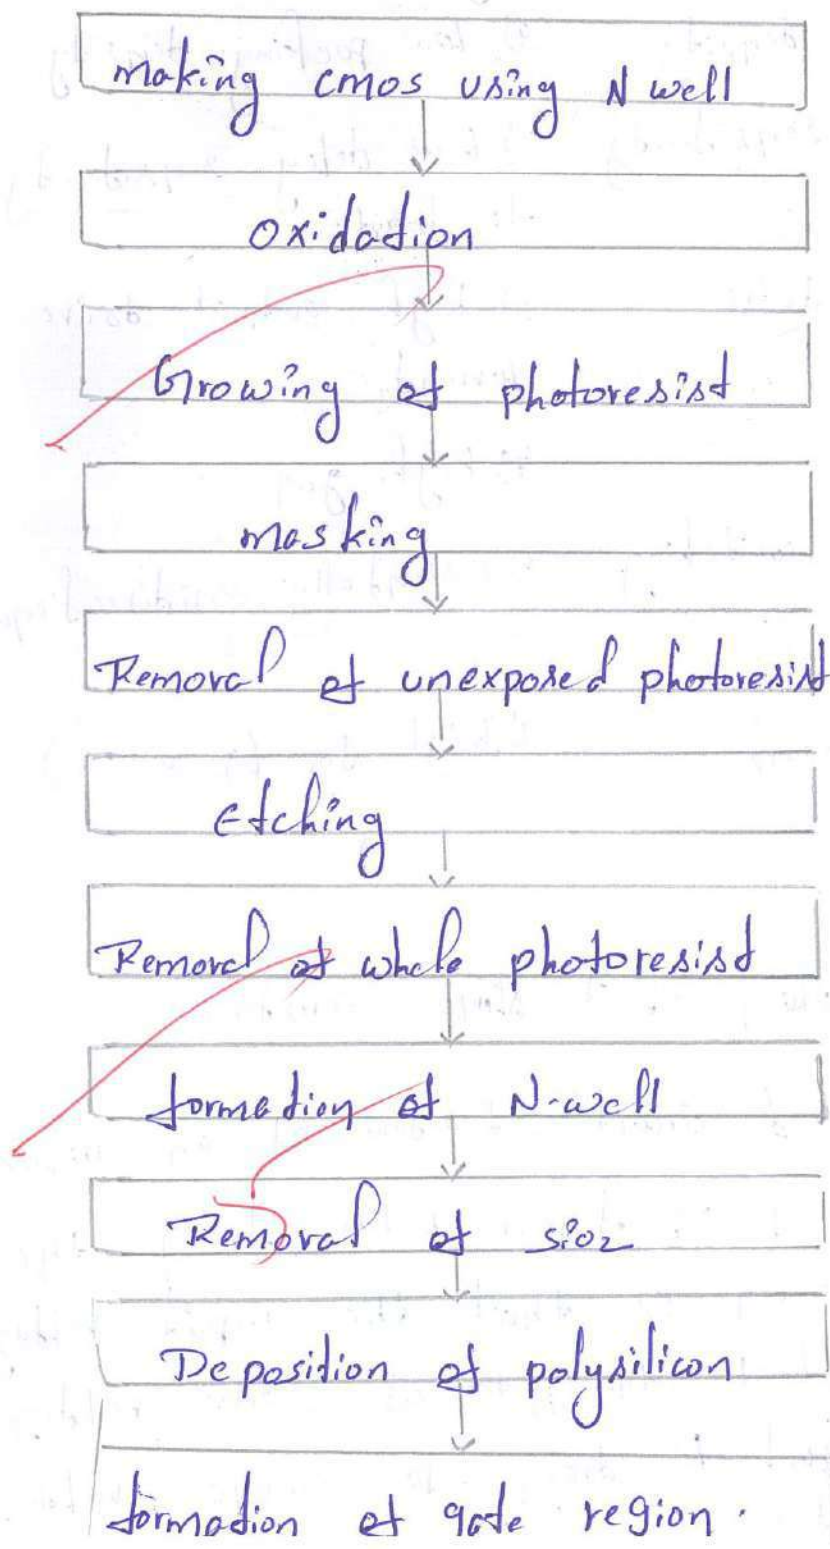 making cmos using N well
oxidation
Growing of photoresist
masking
Removal of unexposed photoresist
Etching
Removal of whole photoresist
formation of N-well
Removal of sio2
Deposition of polysilicon
formation of gate region.